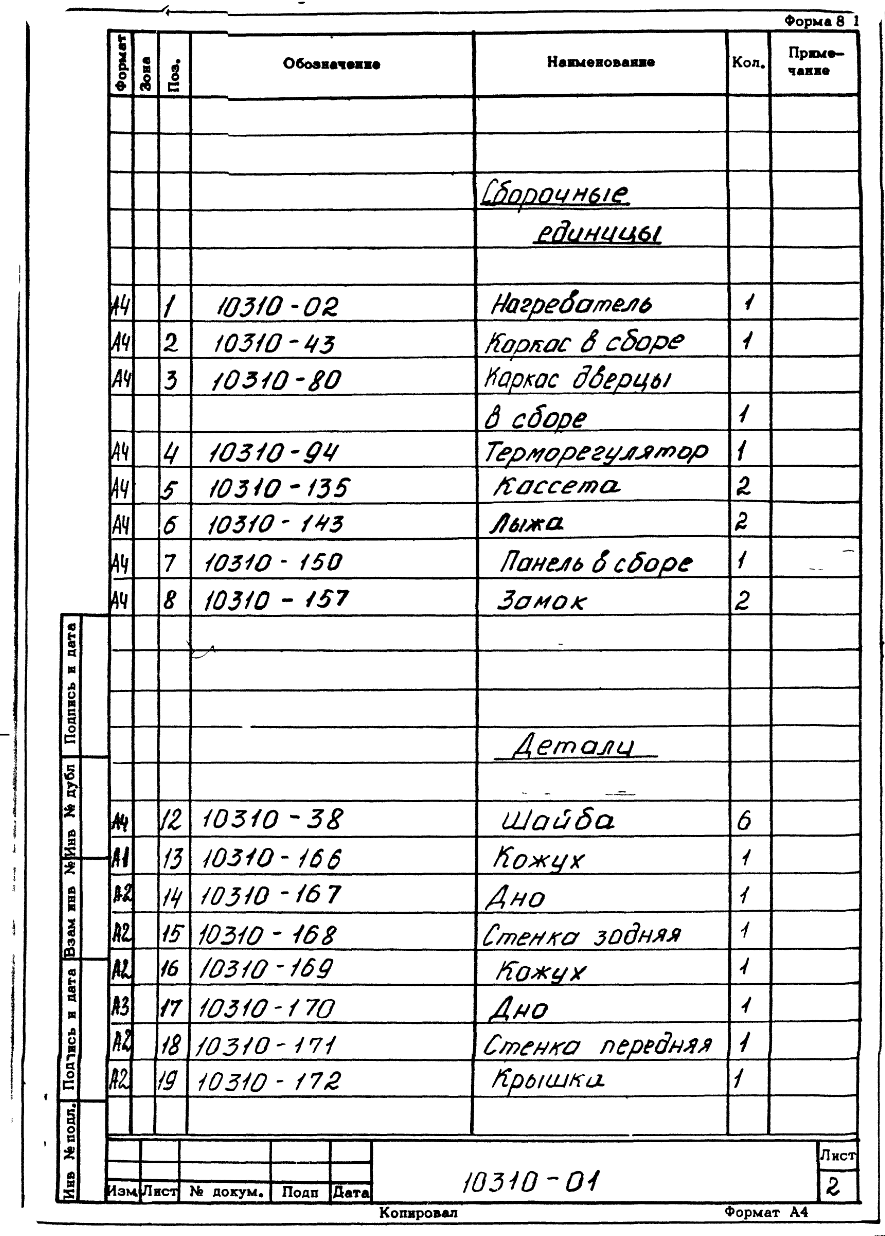 Форма 8 1
Формат Зона Поз. Обозначение Наименование Кол. Приме-
чание
Сборочные
единицы
А4 1 10310-02 Нагреватель 1
А4 2 10310-43 Каркас в сборе 1
А4 3 10310-80 Каркас дверцы
в сборе 1
А4 4 10310-94 Терморегулятор 1
А4 5 10310-135 Кассета 2
А4 6 10310-143 Лыжа 2
А4 7 10310-150 Панель в сборе 1
А4 8 10310-157 Замок 2
Детали
А4 12 10310-38 Шайба 6
А1 13 10310-166 Кожух 1
А2 14 10310-167 Дно 1
А2 15 10310-168 Стенка задняя 1
А2 16 10310-169 Кожух 1
А3 17 10310-170 Дно 1
А2 18 10310-171 Стенка передняя 1
А2 19 10310-172 Крышка 1
Подпись и дата
Инв № дубл
Взам инв №
Подпись и дата
Инв № подл.
Изм Лист № докум. Подп Дата
10310-01
Лист
2
Копировал Формат А4